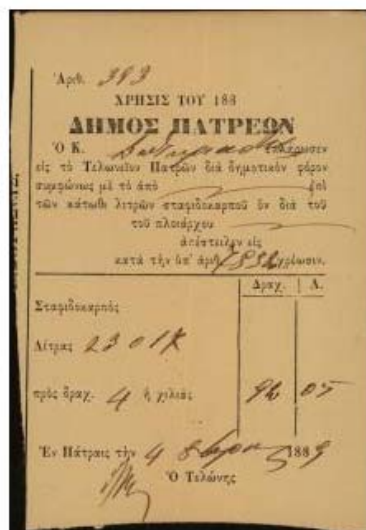 Ἀριθ. 383
ΧΡΗΣΙΣ ΤΟΥ 188
ΔΗΜΟΣ ΠΑΤΡΕΩΝ
Ὁ Κ. ἐπλήρωσεν
εἰς τὸ Τελωνεῖον Πατρῶν διὰ δημοτικὸν φόρον
συμφώνως μὲ τὸ ἀπὸ
τῶν κάτωθι λιτρῶν σταφιδοκαρποῦ ὃν διὰ τοῦ
τοῦ πλοιάρχου
ἀπέστειλεν εἰς
κατὰ τὴν ὑπ' ἀριθ. 1832 χρέωσιν.
Δραχ. Λ.
Σταφιδοκαρπὸς
Λίτρας 23017
πρὸς δραχ. 4 ἡ χιλιὰς 92 05
Ἐν Πάτραις τὴν 4 1889
Ὁ Τελώνης